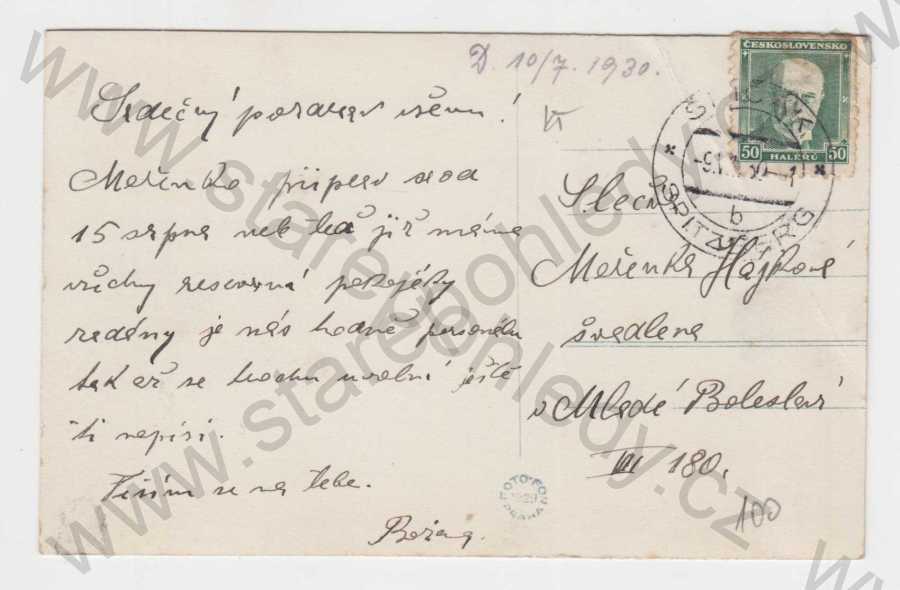 D. 10/7. 1930.
Srdečný pozdrav všem!
Mařenko přijeď sem od
15 srpna neb teď již máme
všichny reservná pokojéky
zadány je nás hodně personálu
tak až se trochu uvolní ještě
ti napíši.
Těším se na tebe.
Božena.
ČESKOSLOVENSKO
50 HALÉŘŮ 50
b
SPITZBERG
Slečna
Mařenka Hájková
švadlena
v Mladé Boleslavi
III 180.
FOTO-FON
1929
PRAHA
100
www.starepohledy.cz
www.starepohledy.cz